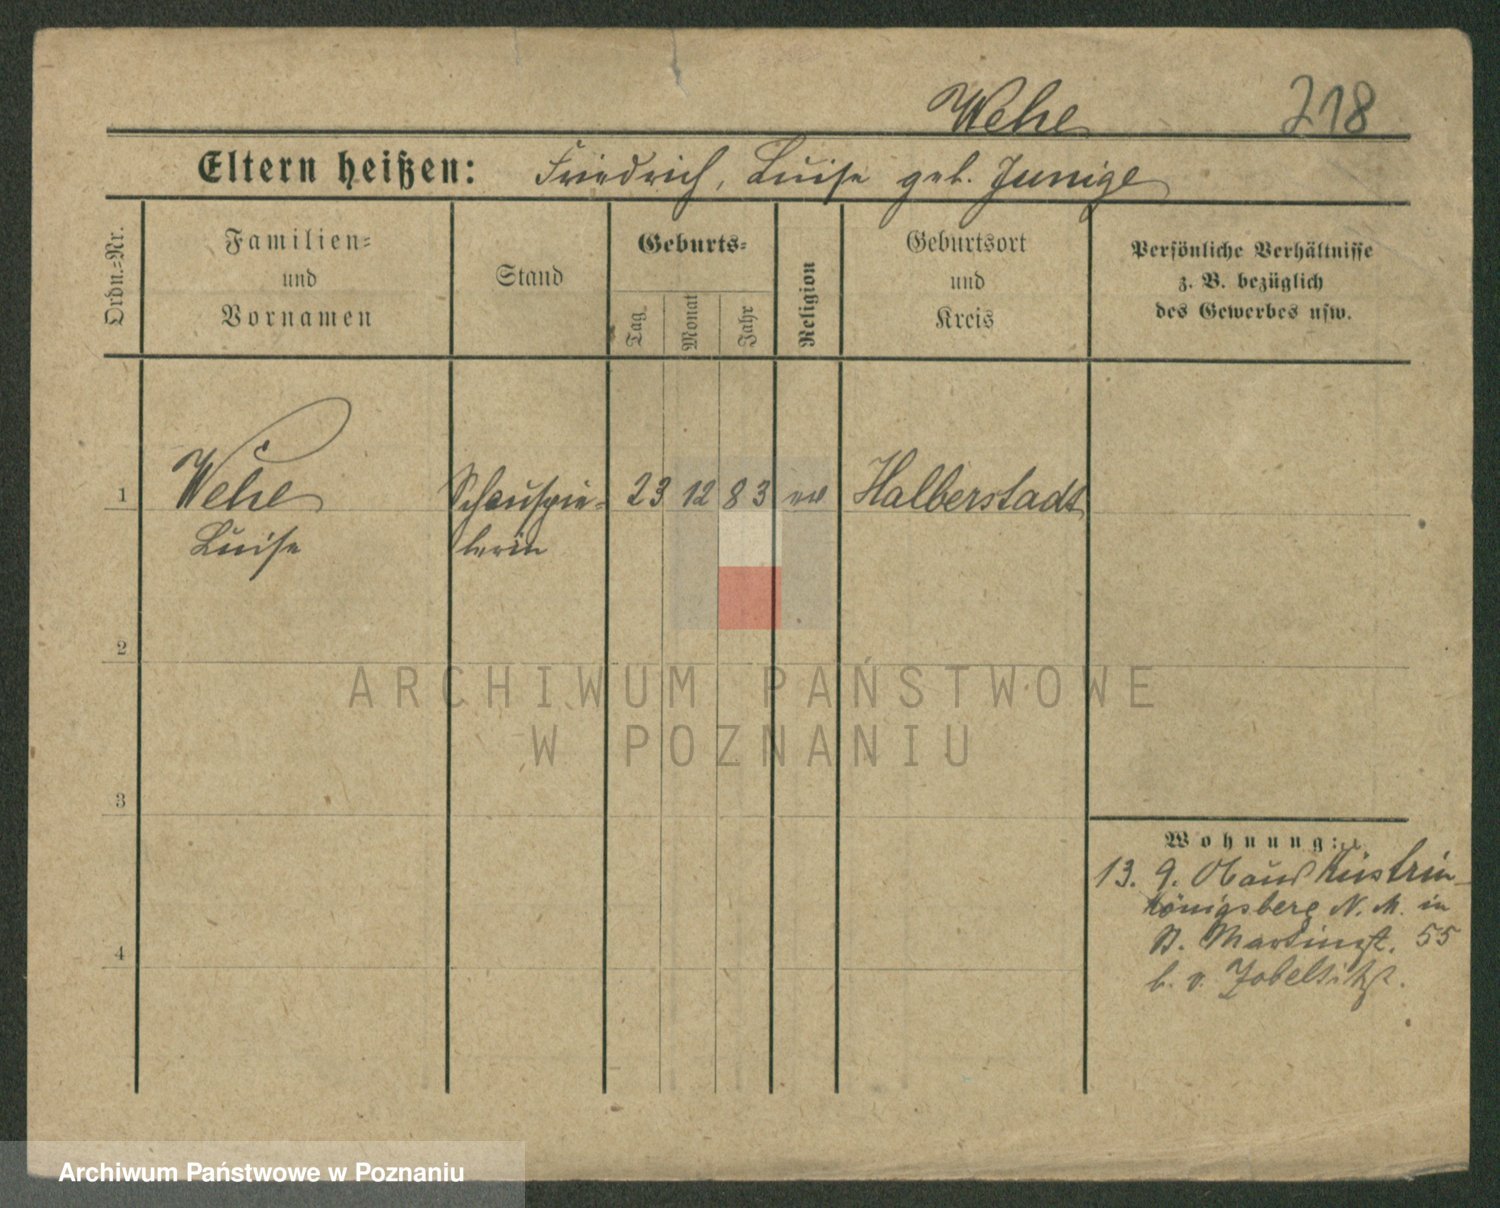 Wehe 218
Eltern heißen: Friedrich, Luise geb. Junige
Ordn.-Nr.
Familien-
und
Vornamen
Stand
Geburts-
Tag
Monat
Jahr
Religion
Geburtsort
und
Kreis
Persönliche Verhältnisse
z. B. bezüglich
des Gewerbes usw.
1 Wehe Schauspie- 23 12 83 ev Halberstadt
Luise lerin
2
3
4
Wohnung:
13. 9. Küstrin
Königsberg N. M. in
St. Martinst. 55
b. v.
ARCHIWUM PAŃSTWOWE
W POZNANIU
Archiwum Państwowe w Poznaniu